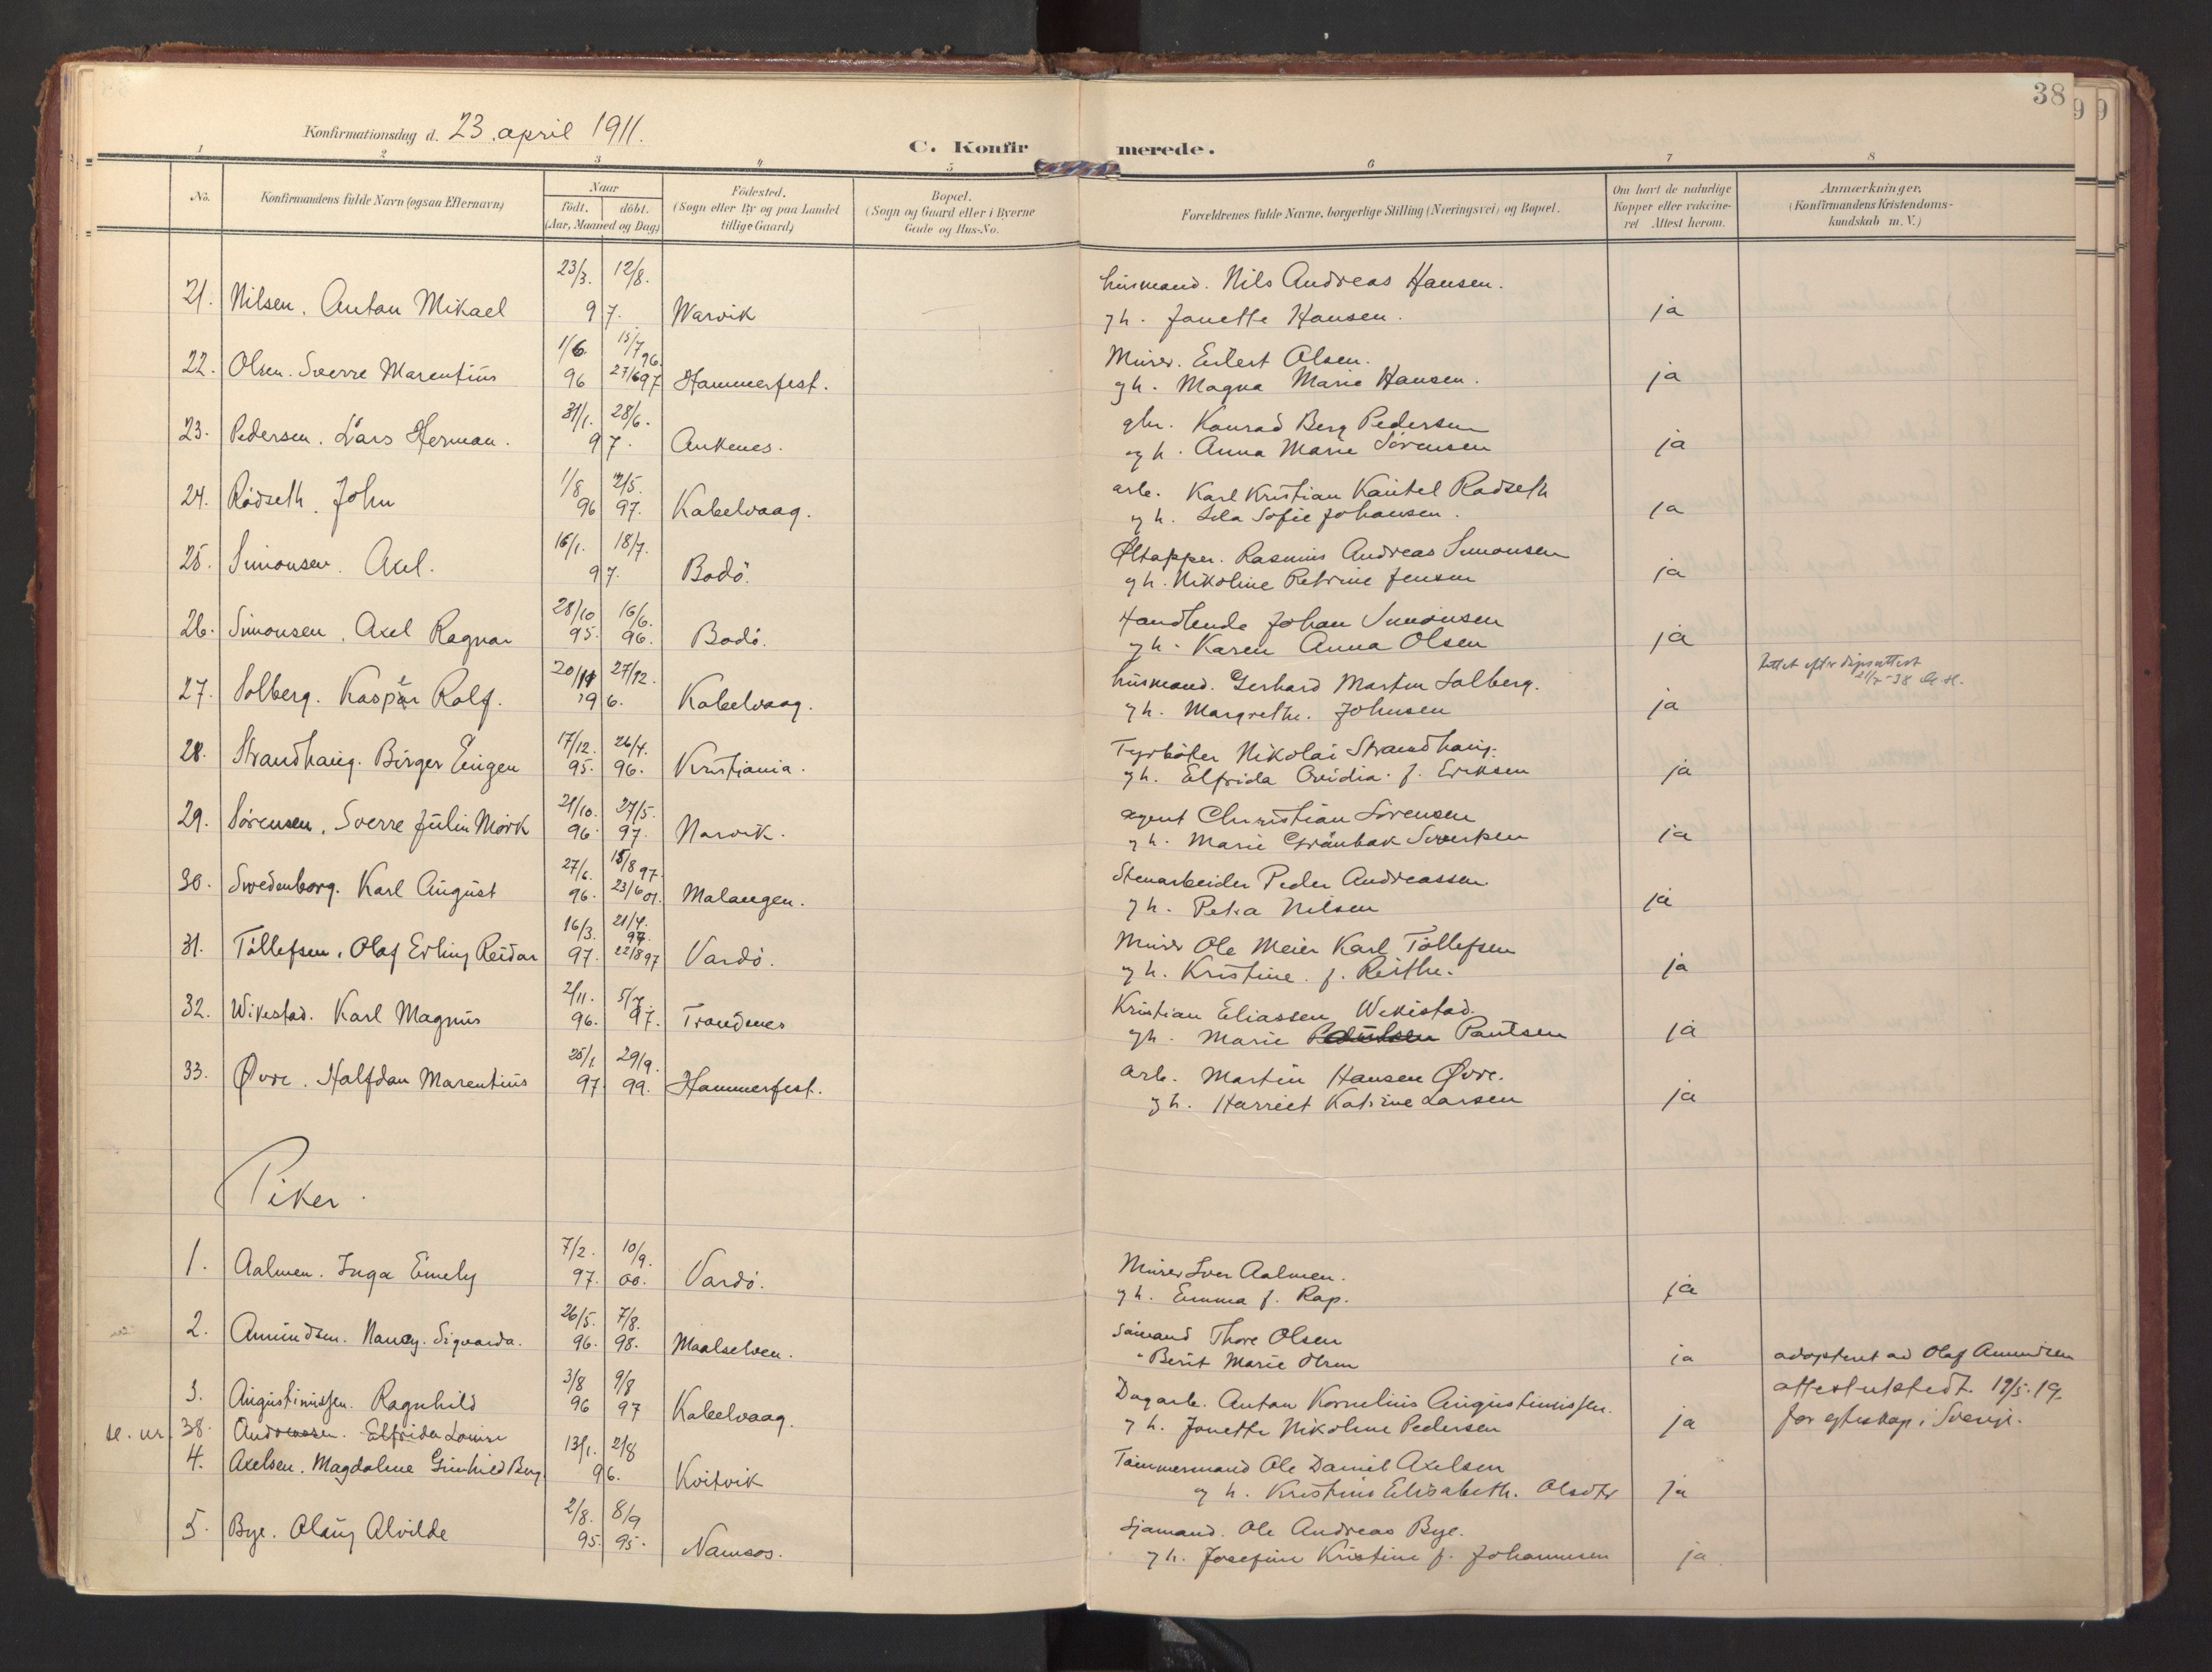 38
Konfirmationsdag d. 23. april 1911.
C. Konfirmerede.
1 2 3 4 5 6 7 8
No.
Konfirmandens fulde Navn (ogsaa Efternavn)
Naar
født. døbt.
(Aar, Maaned og Dag)
Fødested.
(Sogn eller By og paa Landet
tillige Gaard)
Bopæl.
(Sogn og Gaard eller i Byerne
Gade og Hus-No.
Forældrenes fulde Navne, borgerlige Stilling (Næringsvei) og Bopæl.
Om havt de naturlige
Kopper eller vakcine-
ret Attest herom.
Anmærkninger.
(Konfirmandens Kristendoms-
kundskab m. V.)
23/3. 12/8. husmand. Nils Andreas Hansen.
21. Nilsen. Anton Mikael 97. Warvik gh. Janette Hansen. ja
1/6. 15/7 96. Murer. Eilert Olsen.
22. Olsen. Sverre Marentius 96 27/6 97 Hammerfest. gh. Magna Marie Hansen. ja
31/1. 28/6. gbr. Konrad Berg Pedersen
23. Pedersen. Lars Herman. 97. Ankenes. og h. Anna Marie Sørensen ja
1/8 2/5. arb. Karl Kristian Kaurel Rødseth
24. Rødseth. John 96 97. Kabelvaag. og h. Sofie Johansen. ja
16/1. 18/7. Øltapper. Rasmus Andreas Simonsen
25. Simonsen. Axel. 97. Bodö. gh. Nikoline Petrine Jensen ja
28/10 16/6. Handlende Johan Simonsen
26. Simonsen. Axel Ragnar 95. 96. Bodö. gh. Karen Anna Olsen ja
20/11 27/12. husmand. Gerhard Martin Solberg. rettet efter dåpsattest
27. Solberg. Kaspar Rolf. 96. Kabelvaag. gh. Margrethe. Johnsen ja
17/12. 26/4. Fyrbøter Nikolai Strandhaug.
28. Strandhaug. Birger Eugen 95. 96. Kristiania. gh. Elfrida Ovidia. f. Eriksen ja
21/10. 27/5. agent Christian Sørensen
29. Sørensen. Sverre Julin Mørk 96. 97. Narvik. gh. Marie Grönbak ja
27/6. 15/8 97. Stenarbeider Peder Andreassen
30. Swedenborg. Karl August 96. 23/6 01. Malangen. gh. Petra Nilsen ja
16/3. 21/4. 97. Murer Ole Meier Karl Tollefsen
31. Tollefsen. Olaf Erling Reidar 97. 22/8 97 Vardö. gh. Kristine. f. Reithe. ja
2/11. 5/7. Kristian Eliassen Wikistad.
32. Wikestad. Karl Magnus 96. 97. Trondenes gh. Marie Paulsen ja
25/1. 29/9. Arb. Martin Hansen Øvre.
33. Øvre. Halfdan Marentius 97 99. Hammerfest. gh. Harriet Katrine Larsen ja
Piker.
7/2. 10/9. Murer Iver Aalmen.
1. Aalmen. Inga Emely 97. 00. Vardö. gh. Emma f. Rap. ja
26/5. 7/8. Sömand Thore Olsen
2. Amundsen. Nancy. Sigvarda. 96. 98. Maalselven. Berit Marie Olsen ja adoptert av Olaf Amundsen
3/8 9/8 Dagarb. Anton Kornelius Augustinussen. attest utstedt. 19/5. 19.
3. Augustinussen. Ragnhild 96 97 Kabelvaag. gh. Janette Nikoline Pedersen ja for egteskap i Sverige.
se. nr. 38. Andreassen. Elfrida Louise
13/1. 2/8 Tömmermand Ole Daniel Axelsen
4. Axelsen. Magdalene Gunhild Borg 96. Kvitvik gh. Kristine Elisabeth. Olsdtr ja
2/8. 8/9 Sjømand. Ole Andreas Bye.
5. Bye. Olaug Alvilde 95. 95. Namsos. gh. Josefine Kristine f. Johannesen ja